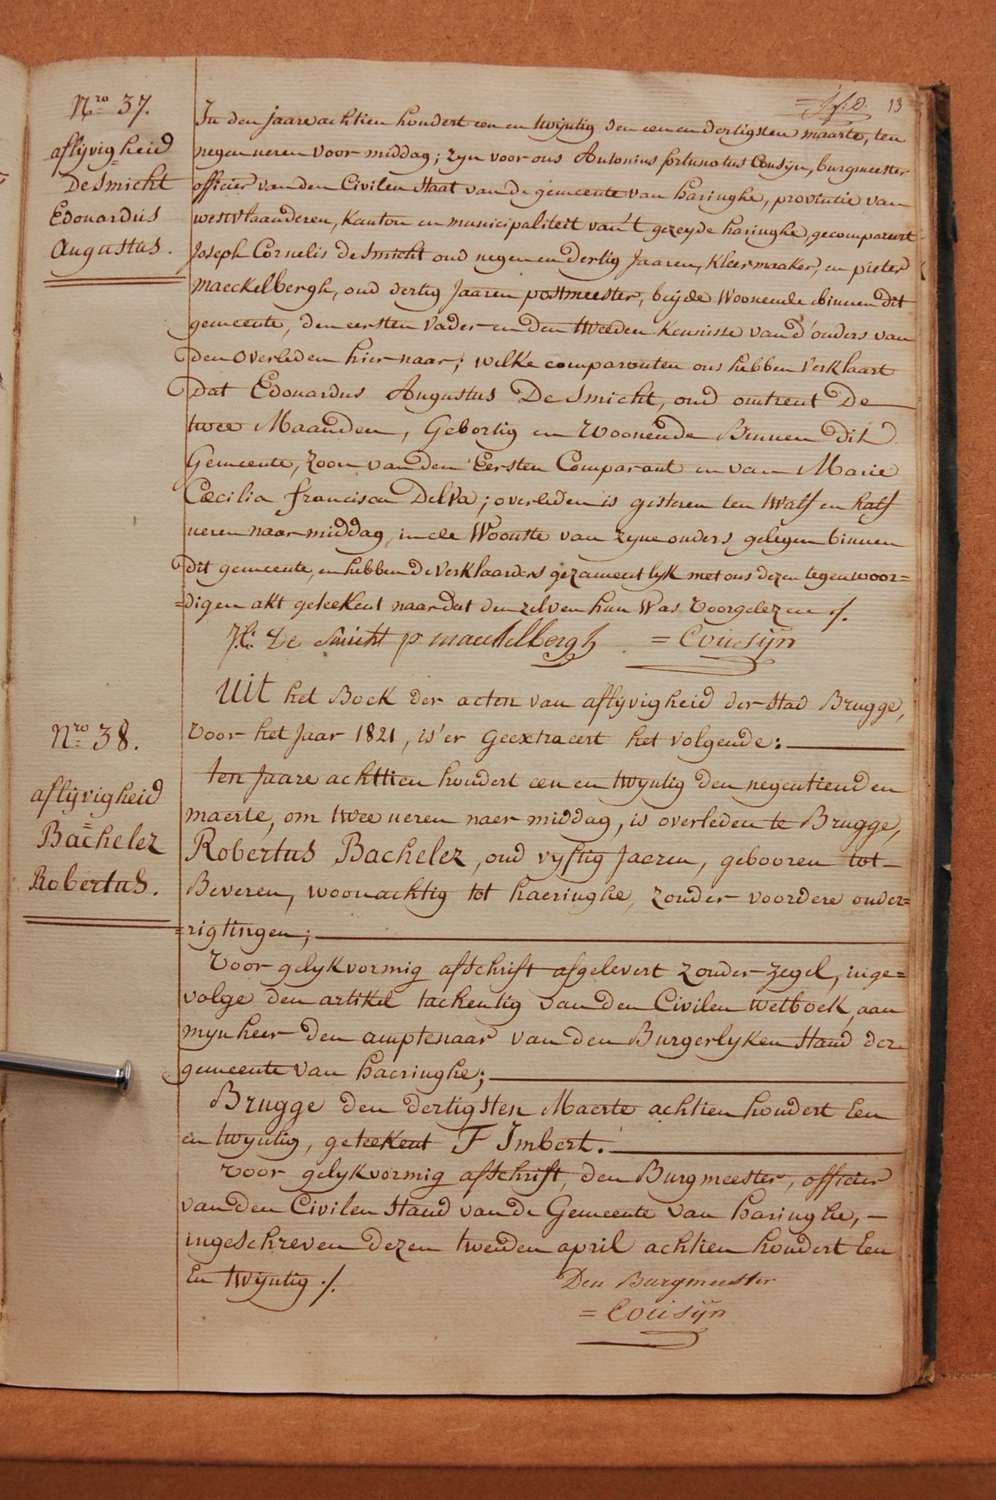 13
Nro 37.
aflijvigheid
De Smicht
Edouardus
Augustus.
In den jaare achtien hondert een en twijntig den een en dertigsten maarte, ten
negen ueren voor middag; zyn voor ons Antonius fortunatus Cousyn, burgmeester
officier van den Civilen Staat van de gemeente van haringhe, provintie van
westvlaanderen, kanton en municipaliteit van 't gezeyde haringhe, gecompareert
Joseph Cornelis de Smicht oud negen en dertig Jaaren, kleermaaker, en pieter
maeckelbergh, oud dertig Jaaren postmeester, beijde woonende binnen dit
gemeente, den eersten vader en den tweeden kennisse van d'ouders van
den overleden hier naar; welke comparanten ons hebben verklaart
dat Edouardus Augustus De Smicht, oud omtrent De
twee Maanden, Gebortig en Woonende Binnen dit
Gemeente, Zoon van den Eersten Comparant en van Marie
Cæcilia francisca Delva; overleden is gisteren ten twalf en half
ueren naar middag, in de Woonste van zyne ouders gelegen binnen
dit gemeente, en hebben de verklaarders gezamentlyk met ons dezen tegenwoor=
=digen akt geteekent naar dat den zelven hun Was voorgelezen ./.
De Smicht p maeckelbergh = Cousijn
Nro 38.
aflijvigheid
=
Bachelez
Robertus.
Uit het Boek der acten van aflyvigheid der Stad Brugge,
voor het Jaar 1821, is'er Geextraeert het volgende:
ten Jaare achttien hondert een en twyntig den negentienden
maerte, om twee ueren naer middag, is overleden te Brugge,
Robertus Bachelez, oud vyftig Jaeren, gebooren tot
Beveren, woonachtig tot haeringhe, zonder voordere onder=
=rigtingen;
Voor gelykvormig afschrift afgelevert zonder zegel, inge=
volge den artikel tachentig van den Civilen wetboek, aan
mynheer den amptenaar van den Burgerlyken Stand der
gemeente van haeringhe;
Brugge den dertigsten Maerte achtien hondert Een
en twyntig, geteekent F Imbert.
Voor gelykvormig afschrift, den Burgmeester, officier
van den Civilen Stand van de Gemeente van haringhe,
ingeschreven dezen tweeden april achtien hondert Een
En twijntig ./.
Den Burgmeester
= Cousijn